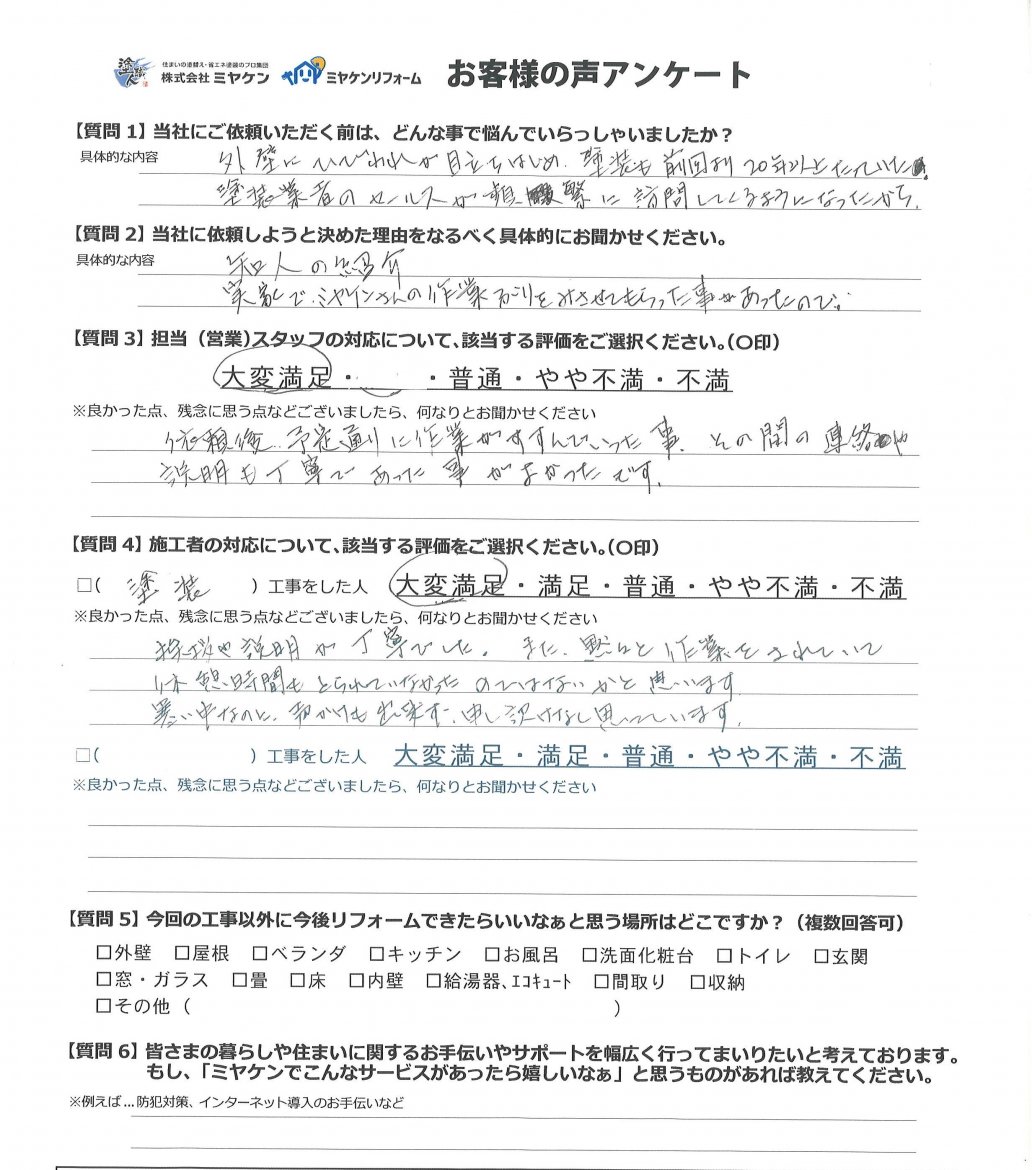 塗人
住まいの塗替え・省エネ塗装のプロ集団
株式会社 ミヤケン
ミヤケンリフォーム
お客様の声アンケート
【質問 1】当社にご依頼いただく前は、どんな事で悩んでいらっしゃいましたか？
具体的な内容
外壁にひびわれが目立ちはじめ、塗装も前回より20年以上たっていた。
塗装業者のセールスが頻繁に訪問してくるようになったから。
【質問 2】当社に依頼しようと決めた理由をなるべく具体的にお聞かせください。
具体的な内容
知人の紹介
実家で、ミヤケンさんの作業ぶりをみさせてもらった事があったので。
【質問 3】担当（営業）スタッフの対応について、該当する評価をご選択ください。（○印）
大変満足・　　・普通・やや不満・不満
※良かった点、残念に思う点などございましたら、何なりとお聞かせください
依頼後、予定通りに作業がすすんでいった事、その間の連絡や
説明も丁寧であった事がよかったです。
【質問 4】施工者の対応について、該当する評価をご選択ください。（○印）
□（ 塗装 ）工事をした人 大変満足・満足・普通・やや不満・不満
※良かった点、残念に思う点などございましたら、何なりとお聞かせください
挨拶や説明が丁寧でした。また、黙々と作業をされていて
休憩時間もとられていなかったのではないかと思います
暑い中なのに、声かけも出来ず、申し訳けなく思っています。
□（ ）工事をした人 大変満足・満足・普通・やや不満・不満
※良かった点、残念に思う点などございましたら、何なりとお聞かせください
【質問 5】今回の工事以外に今後リフォームできたらいいなぁと思う場所はどこですか？（複数回答可）
□外壁 □屋根 □ベランダ □キッチン □お風呂 □洗面化粧台 □トイレ □玄関
□窓・ガラス □畳 □床 □内壁 □給湯器、エコキュート □間取り □収納
□その他（ ）
【質問 6】皆さまの暮らしや住まいに関するお手伝いやサポートを幅広く行ってまいりたいと考えております。
もし、「ミヤケンでこんなサービスがあったら嬉しいなぁ」と思うものがあれば教えてください。
※例えば…防犯対策、インターネット導入のお手伝いなど